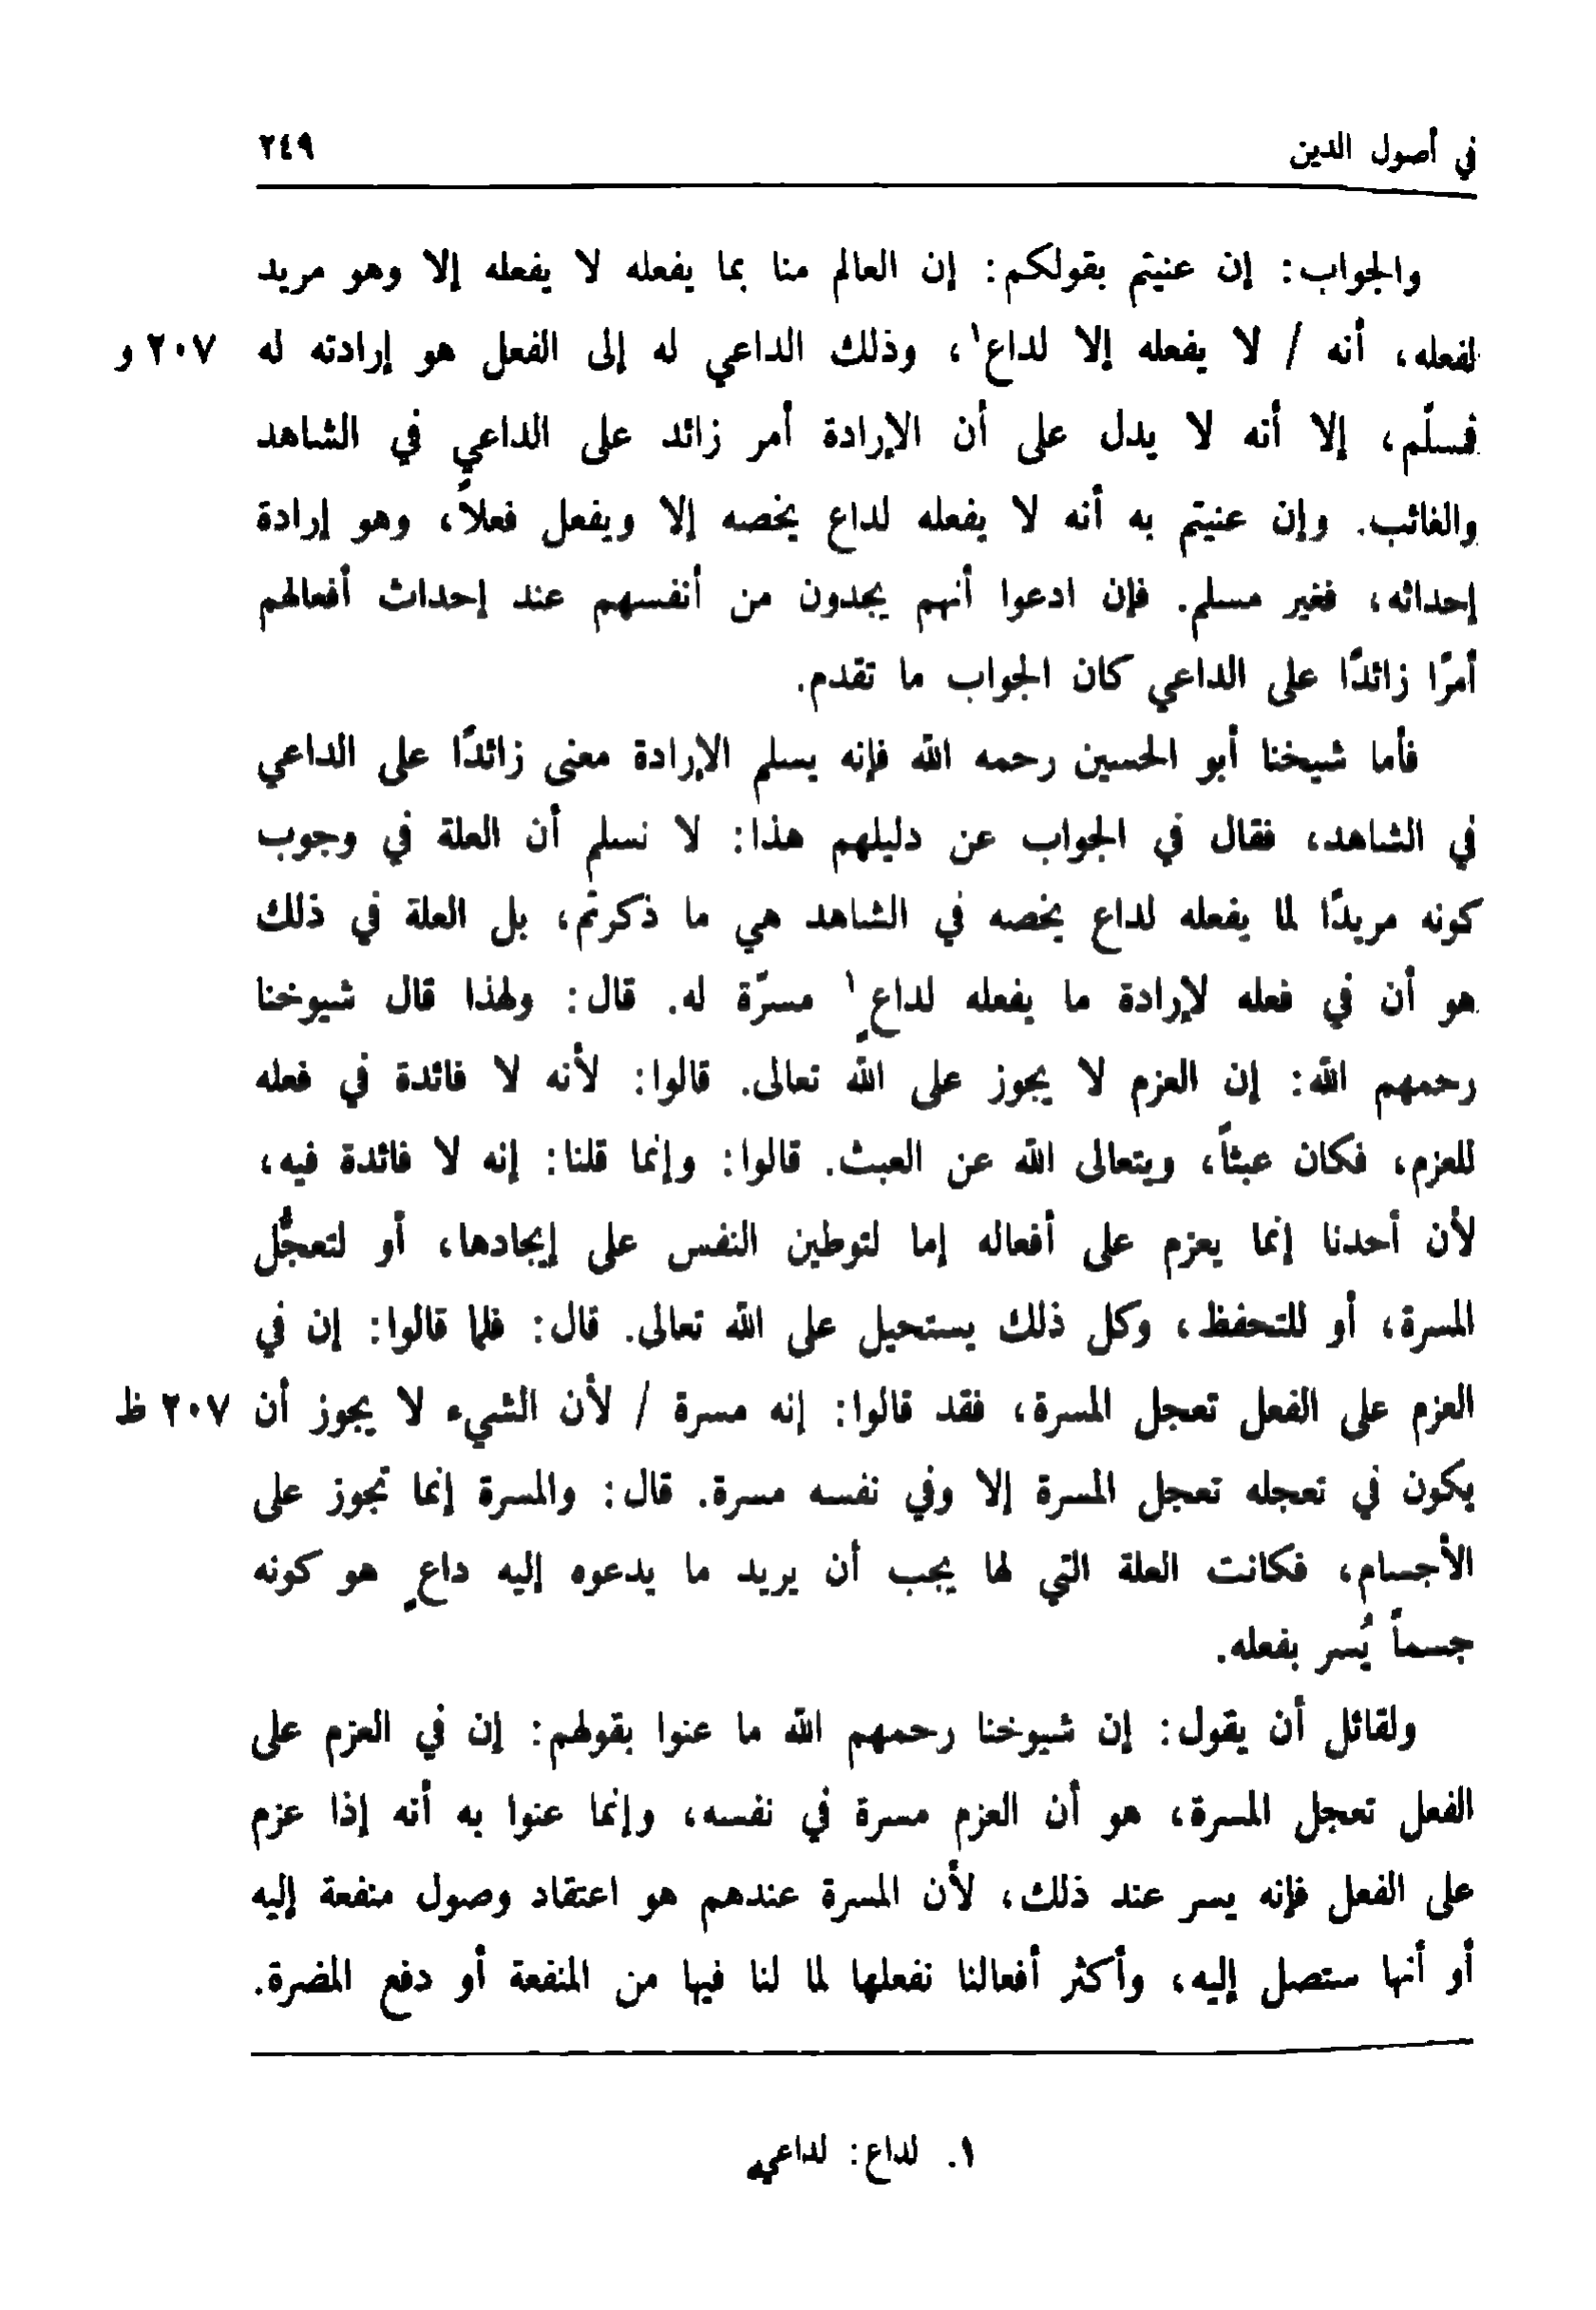 في أصول الدين ٢٤٩
والجواب: إن عنيتم بقولكم: إن العالم منا بما يفعله لا يفعله إلا وهو مريد
لفعله، أنه / لا يفعله إلا لداع١، وذلك الداعي له إلى الفعل هو إرادته له ٢٠٧ و
فسلّم، إلا أنه لا يدل على أن الإرادة أمر زائد على الداعي في الشاهد
والغائب. وإن عنيتم به أنه لا يفعله لداع يخصه إلا ويفعل فعلاً، وهو إرادة
إحداثه، فغير مسلم. فإن ادعوا أنهم يجدون من أنفسهم عند إحداث أفعالهم
أمرًا زائدًا على الداعي كان الجواب ما تقدم.
فأما شيخنا أبو الحسين رحمه الله فإنه يسلم الإرادة معنى زائدًا على الداعي
في الشاهد، فقال في الجواب عن دليلهم هذا: لا نسلم أن العلة في وجوب
كونه مريدًا لما يفعله لداع يخصه في الشاهد هي ما ذكرتم، بل العلة في ذلك
هو أن في فعله لإرادة ما يفعله لداعٍ١ مسرّة له. قال: ولهذا قال شيوخنا
رحمهم الله: إن العزم لا يجوز على الله تعالى. قالوا: لأنه لا فائدة في فعله
للعزم، فكان عبثاً، ويتعالى الله عن العبث. قالوا: وإنما قلنا: إنه لا فائدة فيه،
لأن أحدنا إنما يعزم على أفعاله إما لتوطين النفس على إيجادها، أو لتعجُّل
المسرة، أو للتحفظ، وكل ذلك يستحيل على الله تعالى. قال: فلما قالوا: إن في
العزم على الفعل تعجل المسرة، فقد قالوا: إنه مسرة / لأن الشيء لا يجوز أن ٢٠٧ ظ
يكون في تعجله تعجل المسرة إلا وفي نفسه مسرة. قال: والمسرة إنما تجوز على
الأجسام، فكانت العلة التي لها يجب أن يريد ما يدعوه إليه داعٍ هو كونه
جسماً يُسر بفعله.
ولقائل أن يقول: إن شيوخنا رحمهم الله ما عنوا بقولهم: إن في العزم على
الفعل تعجل المسرة، هو أن العزم مسرة في نفسه، وإنما عنوا به أنه إذا عزم
على الفعل فإنه يسر عند ذلك، لأن المسرة عندهم هو اعتقاد وصول منفعة إليه
أو أنها ستصل إليه، وأكثر أفعالنا نفعلها لما لنا فيها من المنفعة أو دفع المضرة.
١. لداع: لداعيه